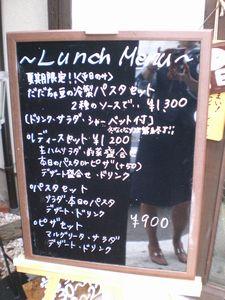 ～Lunch Menu～
夏期限定!!＜平日のみ＞
だだちゃ豆の冷製パスタセット
2種のソースで、¥1,300
(ドリンク・サラダ・シャーベット付)
レディースセット ¥1200
生ハムサラダ・前菜盛合
本日のパスタorピザ(+50)
デザート盛合せ・ドリンク
パスタセット
サラダ・本日のパスタ
デザート・ドリンク
¥900
ピザセット
マルゲリータ・サラダ
デザート・ドリンク